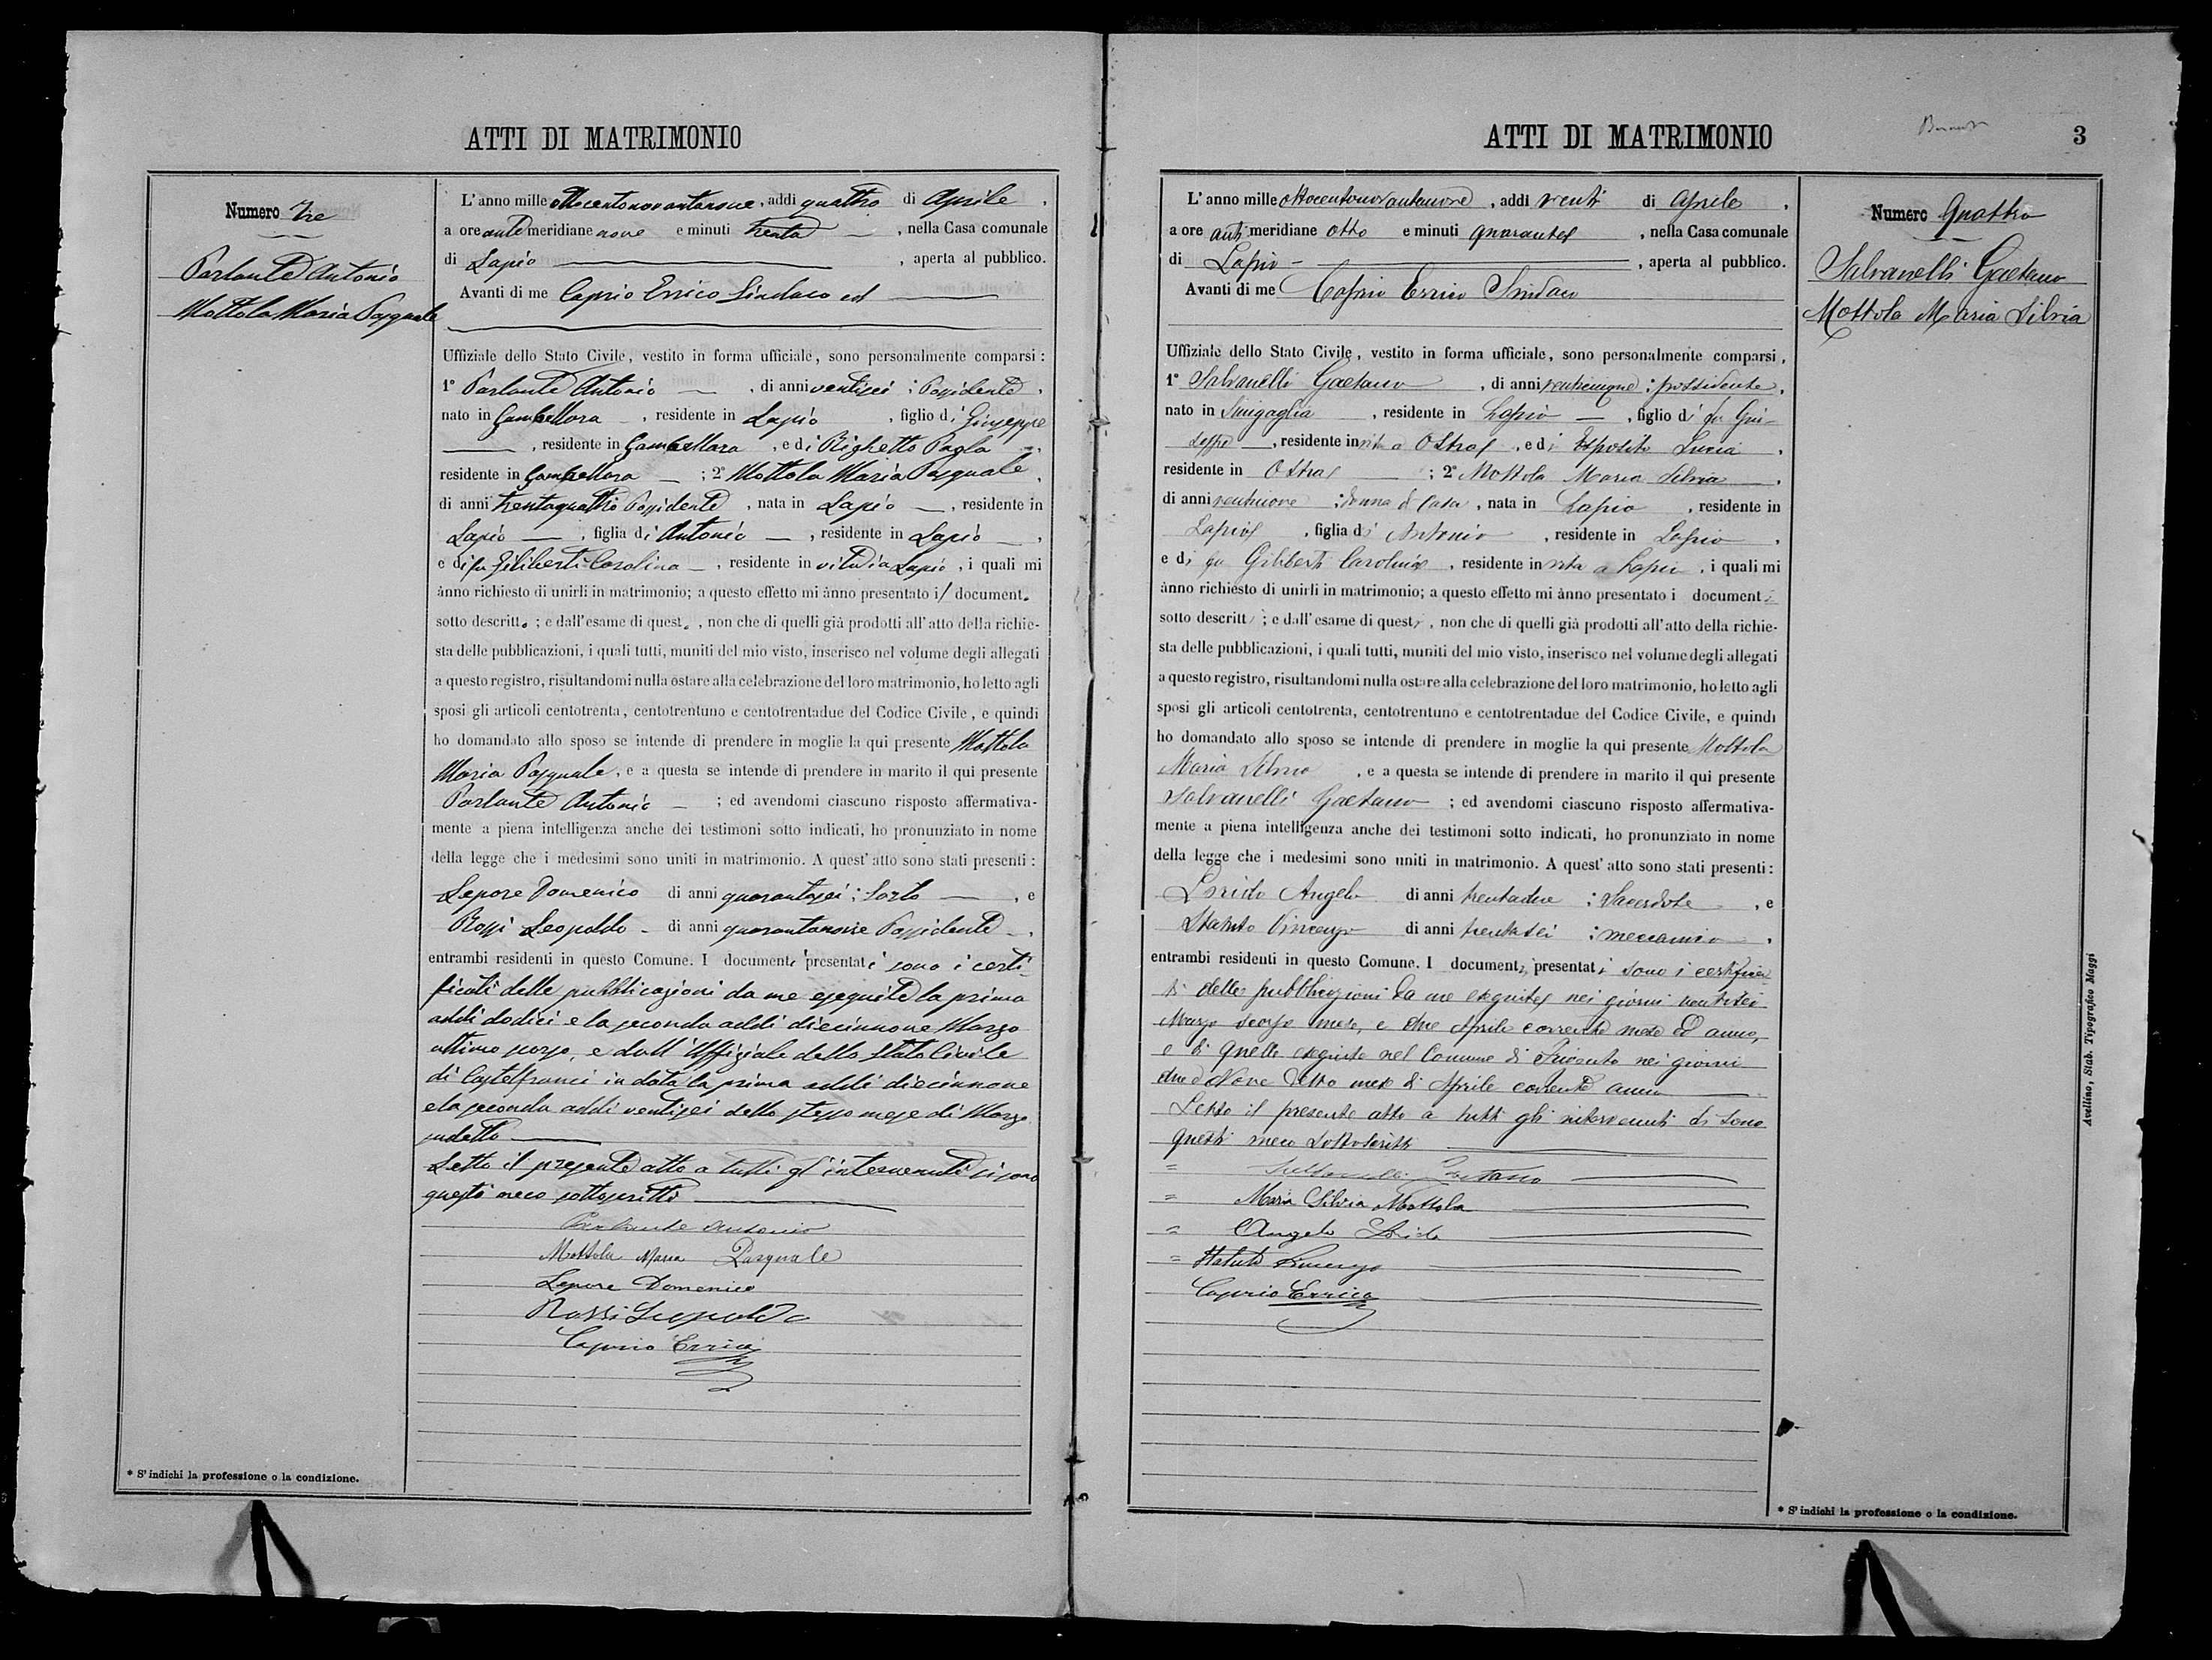 ATTI DI MATRIMONIO
Numero Tre
Parlante Antonio
Mottola Maria Pasquale
L'anno mille ottocentonovantanove, addi quattro di Aprile,
a ore ante meridiane nove e minuti trenta, nella Casa comunale
di Lapio, aperta al pubblico.
Avanti di me Caprio Errico Sindaco ed
Uffiziale dello Stato Civile, vestito in forma ufficiale, sono personalmente comparsi:
1° Parlante Antonio, di anni ventisei; Possidente,
nato in Gambellara, residente in Lapio, figlio di Giuseppe
, residente in Gambellara, e di Righetto Paola,
residente in Gambellara; 2° Mottola Maria Pasquale,
di anni trentaquattro Possidente, nata in Lapio, residente in
Lapio, figlia di Antonio, residente in Lapio,
e di fu Giliberti Carolina, residente in vita in Lapio, i quali mi
ànno richiesto di unirli in matrimonio; a questo effetto mi ànno presentato i document.
sotto descritt.; e dall'esame di quest., non che di quelli già prodotti all'atto della richie-
sta delle pubblicazioni, i quali tutti, muniti del mio visto, inserisco nel volume degli allegati
a questo registro, risultandomi nulla ostare alla celebrazione del loro matrimonio, ho letto agli
sposi gli articoli centotrenta, centotrentuno e centotrentadue del Codice Civile, e quindi
ho domandato allo sposo se intende di prendere in moglie la qui presente Mottola
Maria Pasquale, e a questa se intende di prendere in marito il qui presente
Parlante Antonio; ed avendomi ciascuno risposto affermativa-
mente a piena intelligenza anche dei testimoni sotto indicati, ho pronunziato in nome
della legge che i medesimi sono uniti in matrimonio. A quest'atto sono stati presenti:
Lepore Domenico di anni quarantasei; Sarto, e
Rossi Leopoldo di anni quarantanove Possidente,
entrambi residenti in questo Comune. I documenti presentati sono i certi-
ficati delle pubblicazioni da me eseguite la prima
addi dodici e la seconda addi diecinnove Marzo
ultimo scorso, e dall'Uffiziale dello Stato Civile
di Castelfranci in data la prima addi diecinnove
e la seconda addi ventisei dello stesso mese di Marzo
sudetto
Letto il presente atto a tutti gl'intervenuti si sono
questi meco sottoscritti
Parlante Antonio
Mottola Maria Pasquale
Lepore Domenico
Rossi Leopoldo
Caprio Errico
* S'indichi la professione o la condizione.
ATTI DI MATRIMONIO
3
Numero Quattro
Salvanelli Gaetano
Mottola Maria Silvia
L'anno mille ottocentonovantanove, addi venti di Aprile,
a ore anti meridiane otto e minuti quaranta, nella Casa comunale
di Lapio, aperta al pubblico.
Avanti di me Caprio Errico Sindaco
Uffiziale dello Stato Civile, vestito in forma ufficiale, sono personalmente comparsi,
1° Salvanelli Gaetano, di anni venticinque; possidente,
nato in Sinigaglia, residente in Lapio, figlio di fu Giu-
seppe, residente in vita a Ostra, e di Esposito Lucia,
residente in Ostra; 2° Mottola Maria Silvia,
di anni ventinove; donna di casa, nata in Lapio, residente in
Lapio, figlia di Antonio, residente in Lapio,
e di fu Giliberti Carolina, residente in vita a Lapio, i quali mi
ànno richiesto di unirli in matrimonio; a questo effetto mi ànno presentato i documenti
sotto descritti; e dall'esame di questi, non che di quelli già prodotti all'atto della richie-
sta delle pubblicazioni, i quali tutti, muniti del mio visto, inserisco nel volume degli allegati
a questo registro, risultandomi nulla ostare alla celebrazione del loro matrimonio, ho letto agli
sposi gli articoli centotrenta, centotrentuno e centotrentadue del Codice Civile, e quindi
ho domandato allo sposo se intende di prendere in moglie la qui presente Mottola
Maria Silvia, e a questa se intende di prendere in marito il qui presente
Salvanelli Gaetano; ed avendomi ciascuno risposto affermativa-
mente a piena intelligenza anche dei testimoni sotto indicati, ho pronunziato in nome
della legge che i medesimi sono uniti in matrimonio. A quest'atto sono stati presenti:
Angelo di anni trentadue; Sacerdote, e
Statuto Vincenzo di anni trentasei; meccanico,
entrambi residenti in questo Comune. I documenti presentati sono i certifica-
ti delle pubblicazioni da me eseguite nei giorni ventisei
Marzo scorso mese, e due Aprile corrente mese ed anno,
e di quelle eseguite nel Comune di nei giorni
due e Nove detto mese di Aprile corrente anno
Letto il presente atto a tutti gli intervenuti si sono
questi meco sottoscritti
= Salvanelli Gaetano
= Maria Silvia Mottola
= Angelo
= Statuto Vincenzo
Caprio Errico
* S'indichi la professione o la condizione.
Avellino, Stab. Tipografico Maggi